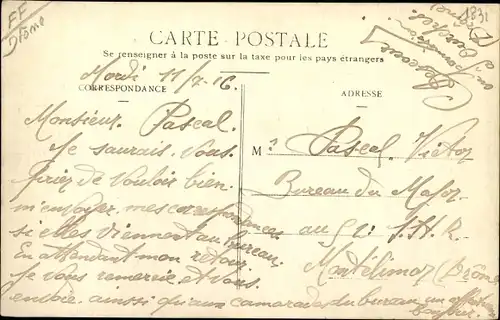 FF
Drôme
1831
CARTE POSTALE
Se renseigner à la poste sur la taxe pour les pays étrangers
Mardi 11/7-16.
CORRESPONDANCE
ADRESSE
Monsieur Pascal.
Je saurais vous
prier de vouloir bien
m'envoyer mes correspondances
si elles viennent au bureau.
En attendant mon retour
Je vous remercie et vous
envoie ainsi qu'aux camarades du bureau un affectueux
bonjour.
Mr Pascal Victor
Bureau du Major
au 52e
Montélimar (Drôme)